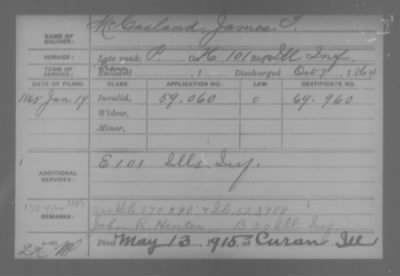 NAME OF SOLDIER: McCasland, James T.
SERVICE: Late rank, P. Co. 101 Reg't Ill Inf
TERM OF SERVICE: Enlisted , 1 Discharged Oct 7, 1864
DATE OF FILING. CLASS. APPLICATION NO. LAW. CERTIFICATE NO.
1865 Jan 19 Invalid, 59.060 0 69.960
Widow,
Minor,
ADDITIONAL SERVICES: E 101 Ills Inf.
REMARKS:
John R. Ill. Inf
Died May 13, 1915 at Curan Ill